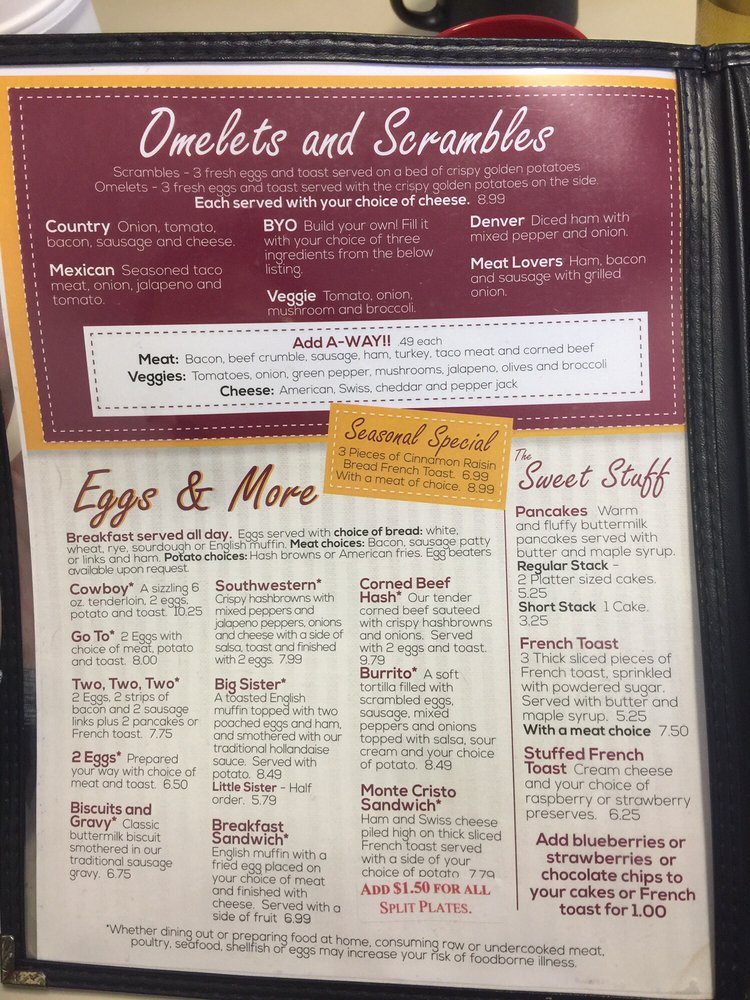 Omelets and Scrambles
Scrambles - 3 fresh eggs and toast served on a bed of crispy golden potatoes
Omelets - 3 fresh eggs and toast served with the crispy golden potatoes on the side.
Each served with your choice of cheese. 8.99
Country Onion, tomato,
bacon, sausage and cheese.
Mexican Seasoned taco
meat, onion, jalapeno and
tomato.
BYO Build your own! Fill it
with your choice of three
ingredients from the below
listing.
Veggie Tomato, onion,
mushroom and broccoli.
Denver Diced ham with
mixed pepper and onion.
Meat Lovers Ham, bacon
and sausage with grilled
onion.
Add A-WAY!! .49 each
Meat: Bacon, beef crumble, sausage, ham, turkey, taco meat and corned beef
Veggies: Tomatoes, onion, green pepper, mushrooms, jalapeno, olives and broccoli
Cheese: American, Swiss, cheddar and pepper jack
Seasonal Special
3 Pieces of Cinnamon Raisin
Bread French Toast. 6.99
With a meat of choice. 8.99
Eggs & More
Breakfast served all day. Eggs served with choice of bread: white,
wheat, rye, sourdough or English muffin. Meat choices: Bacon, sausage patty
or links and ham. Potato choices: Hash browns or American fries. Egg beaters
available upon request.
Cowboy* A sizzling 6
oz. tenderloin, 2 eggs,
potato and toast. 10.25
Go To* 2 Eggs with
choice of meat, potato
and toast. 8.00
Two, Two, Two*
2 Eggs, 2 strips of
bacon and 2 sausage
links plus 2 pancakes or
French toast. 7.75
2 Eggs* Prepared
your way with choice of
meat and toast. 6.50
Biscuits and
Gravy* Classic
buttermilk biscuit
smothered in our
traditional sausage
gravy. 6.75
Southwestern*
Crispy hashbrowns with
mixed peppers and
jalapeno peppers, onions
and cheese with a side of
salsa, toast and finished
with 2 eggs. 7.99
Big Sister*
A toasted English
muffin topped with two
poached eggs and ham,
and smothered with our
traditional hollandaise
sauce. Served with
potato. 8.49
Little Sister - Half
order. 5.79
Breakfast
Sandwich*
English muffin with a
fried egg placed on
your choice of meat
and finished with
cheese. Served with a
side of fruit 6.99
Corned Beef
Hash* Our tender
corned beef sauteed
with crispy hashbrowns
and onions. Served
with 2 eggs and toast.
9.79
Burrito* A soft
tortilla filled with
scrambled eggs,
sausage, mixed
peppers and onions
topped with salsa, sour
cream and your choice
of potato. 8.49
Monte Cristo
Sandwich*
Ham and Swiss cheese
piled high on thick sliced
French toast served
with a side of your
choice of potato 7.79
ADD $1.50 FOR ALL
SPLIT PLATES.
The
Sweet Stuff
Pancakes Warm
and fluffy buttermilk
pancakes served with
butter and maple syrup.
Regular Stack -
2 Platter sized cakes.
5.25
Short Stack 1 Cake.
3.25
French Toast
3 Thick sliced pieces of
French toast, sprinkled
with powdered sugar.
Served with butter and
maple syrup. 5.25
With a meat choice 7.50
Stuffed French
Toast Cream cheese
and your choice of
raspberry or strawberry
preserves. 6.25
Add blueberries or
strawberries or
chocolate chips to
your cakes or French
toast for 1.00
*Whether dining out or preparing food at home, consuming raw or undercooked meat,
poultry, seafood, shellfish or eggs may increase your risk of foodborne illness.